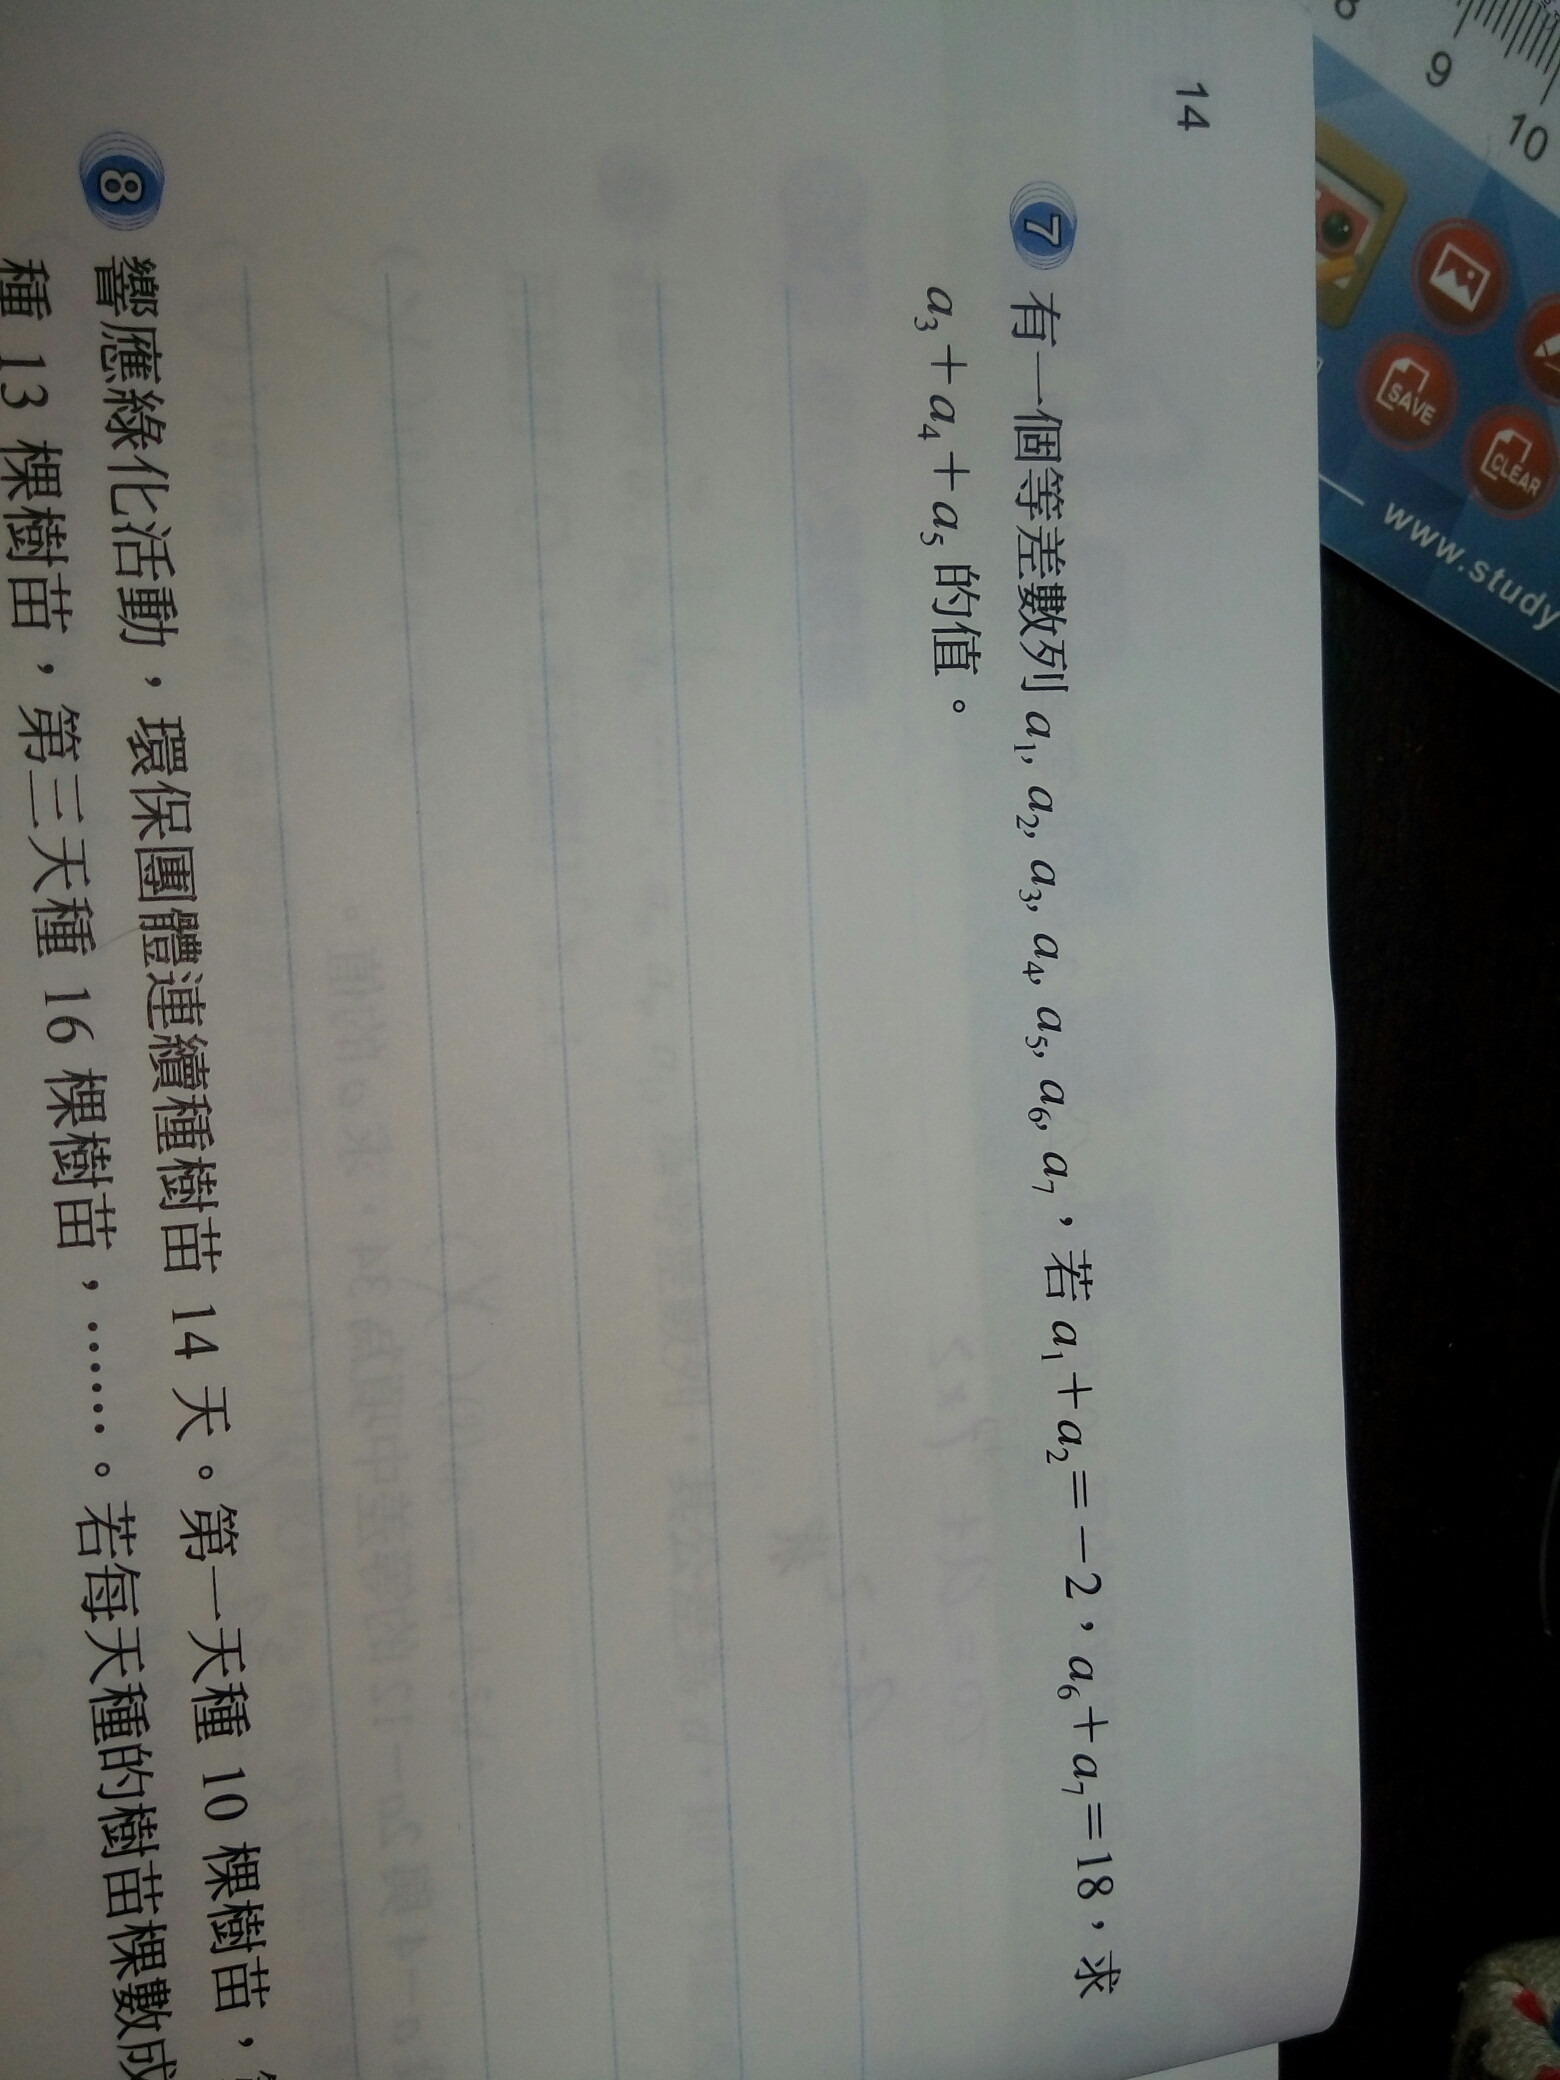 14
7 有一個等差數列 a₁, a₂, a₃, a₄, a₅, a₆, a₇，若 a₁＋a₂＝－2，a₆＋a₇＝18，求
a₃＋a₄＋a₅ 的值。
8 響應綠化活動，環保團體連續種樹苗 14 天。第一天種 10 棵樹苗，
種 13 棵樹苗，第三天種 16 棵樹苗，……。若每天種的樹苗棵數成
9
10
SAVE
CLEAR
www.study